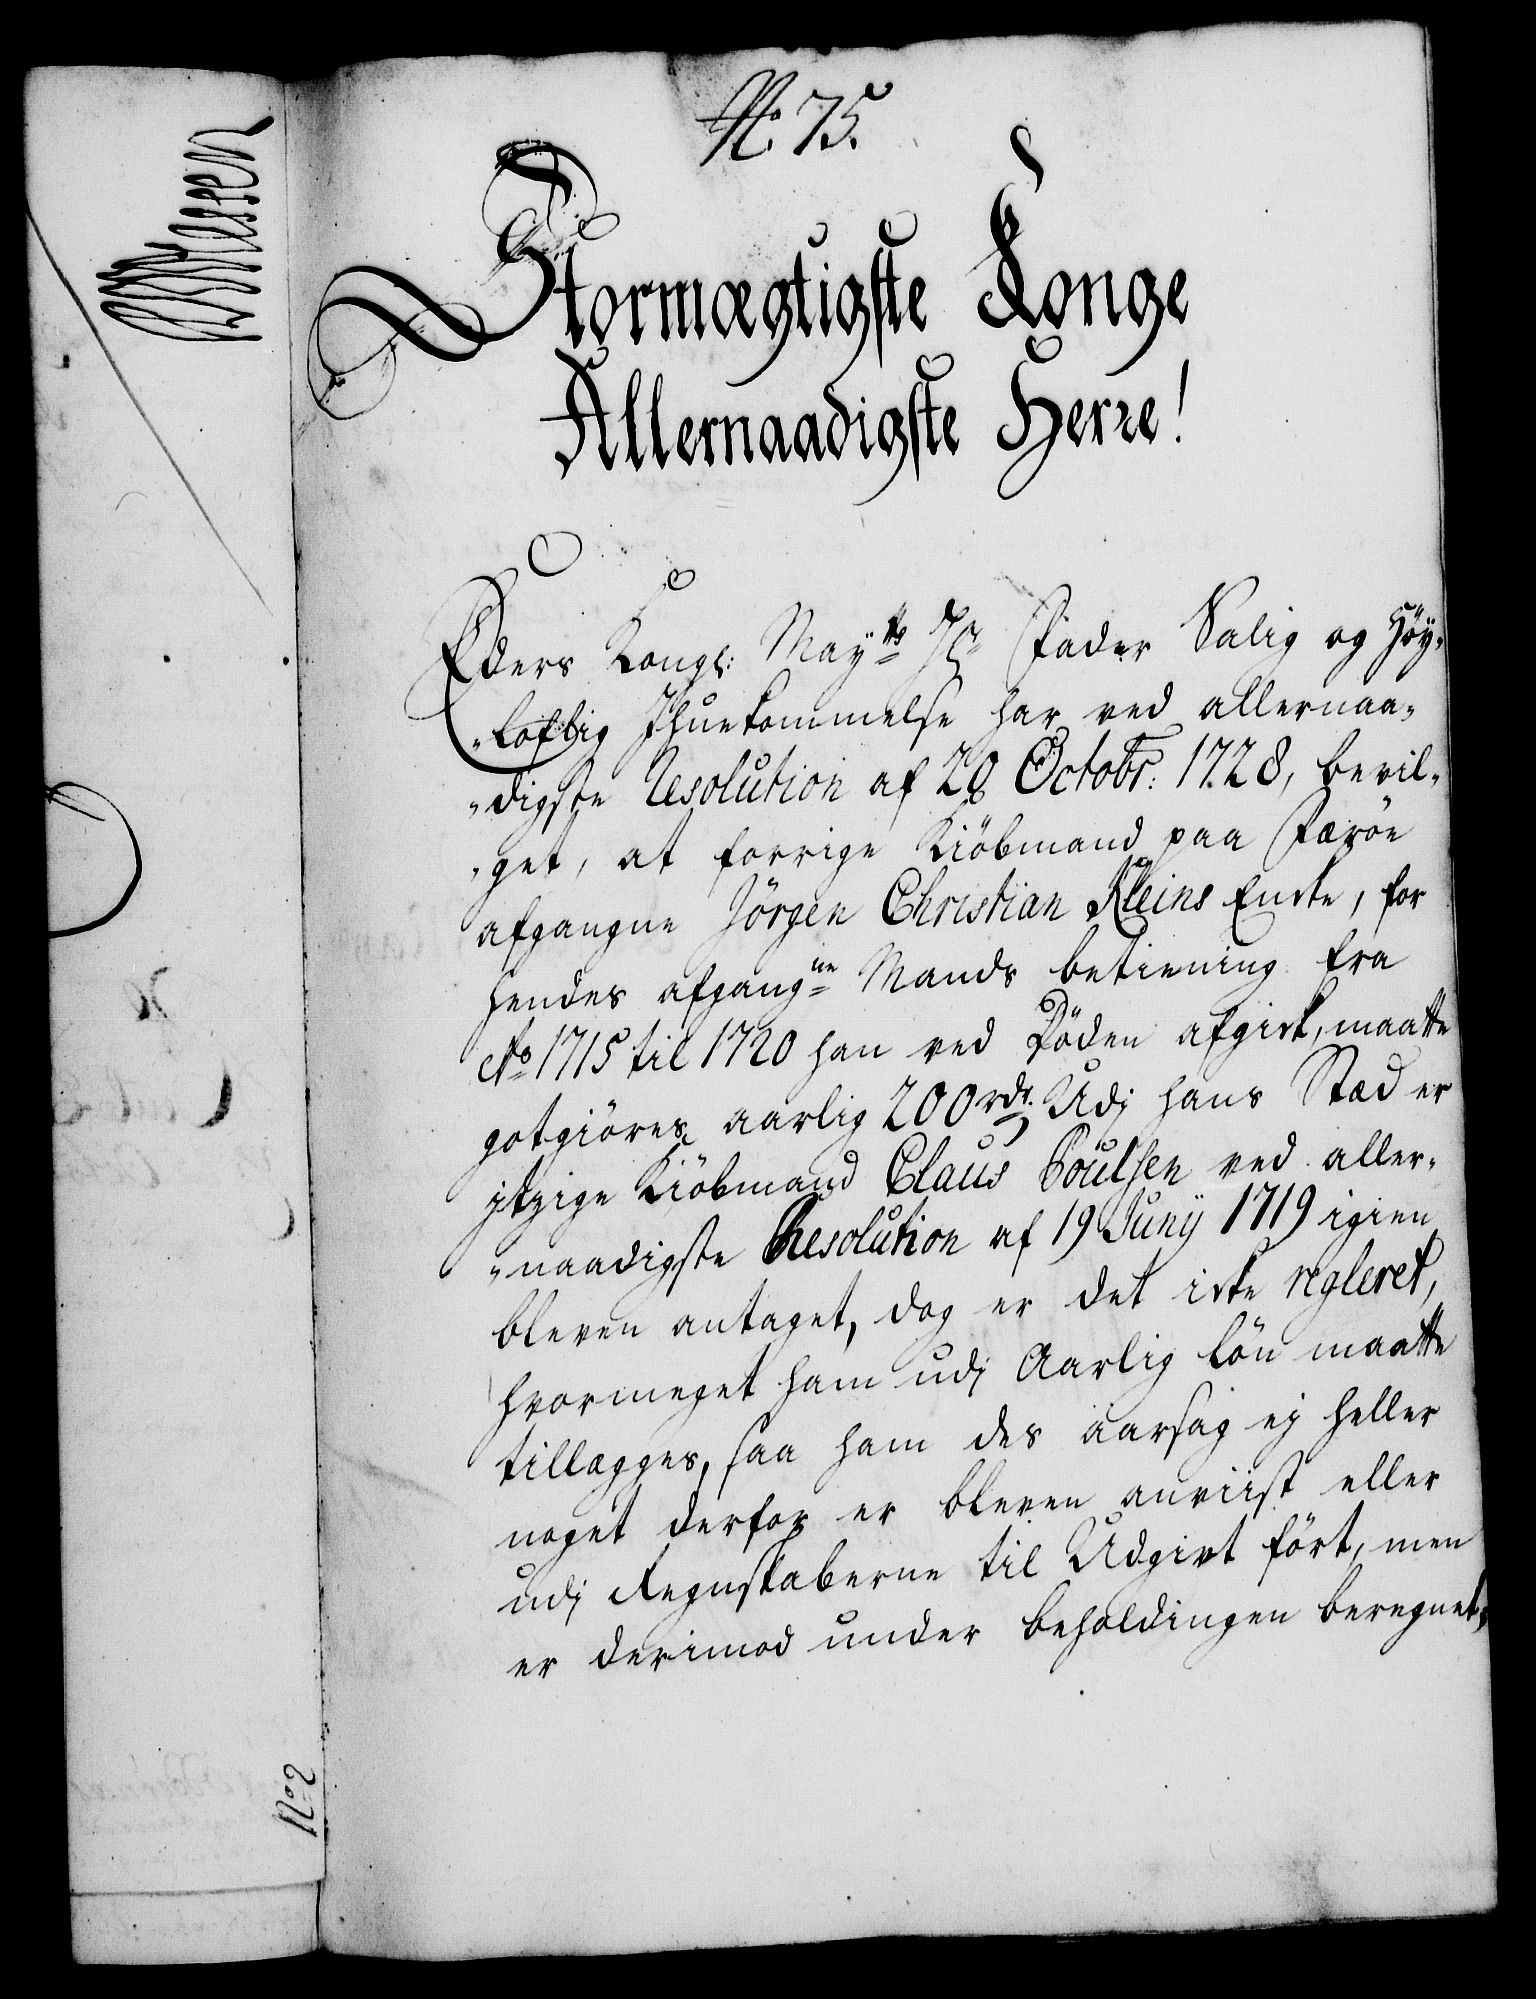 No. 75.
Stormægtigste Konge
Allernaadigste Herre!
Eders Kongl: Mayts Hr Fader Salig og Höy„
„loflig Ihuekommelse har ved allernaa„
„digste Resolution af 28 Octobr: 1728, bevil„
„get, at forrige Kiöbmand paa Færöe
afgangne Jörgen Christian Kleins Encke, for
hendes afgangne Mands betiening fra
Ao 1715 til 1720 han ved Döden afgick, maatte
gotgiöres aarlig 200 rdr. Udj hans Stæd er
itzige Kiöbmand Claus Poulsen ved aller„
„naadigste Resolution af 19 Junij 1719 igien
bleven antaget, dog er det icke regleret,
hvormeget ham udj Aarlig lön maatte
tillægges, saa ham des aarsag ej heller
noget derfor er bleven anviist eller
udj Regnskaberne til Udgivt fört, men
er derimod under beholdingen beregnet,
No 2